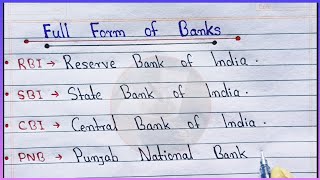 Full Form of Banks
• RBI → Reserve Bank of India.
• SBI → State Bank of India.
• CBI → Central Bank of India.
• PNB → Punjab National Bank